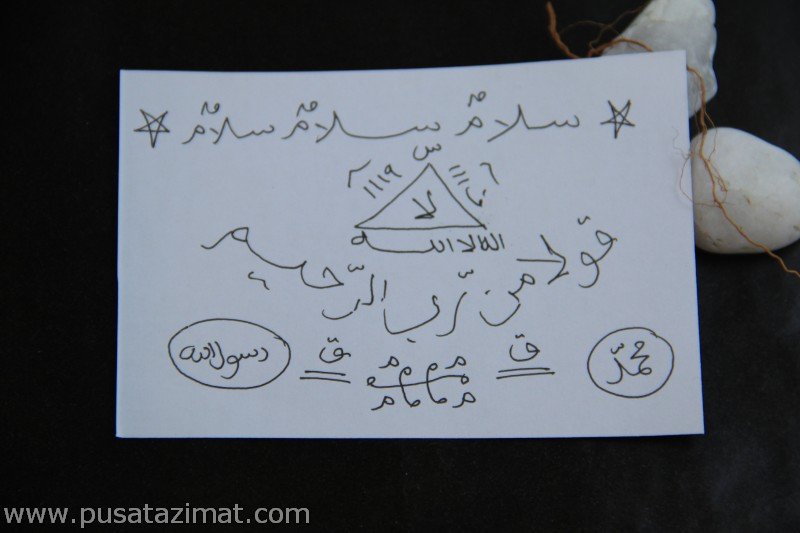 سلامٌ سلامٌ سلامٌ
س
١١١٩
لا
اللهالاالله
قولا من رّبِ الرّحيم
محمّد ق ق رسول الله
م م م م
م م م م م
www.pusatazimat.com